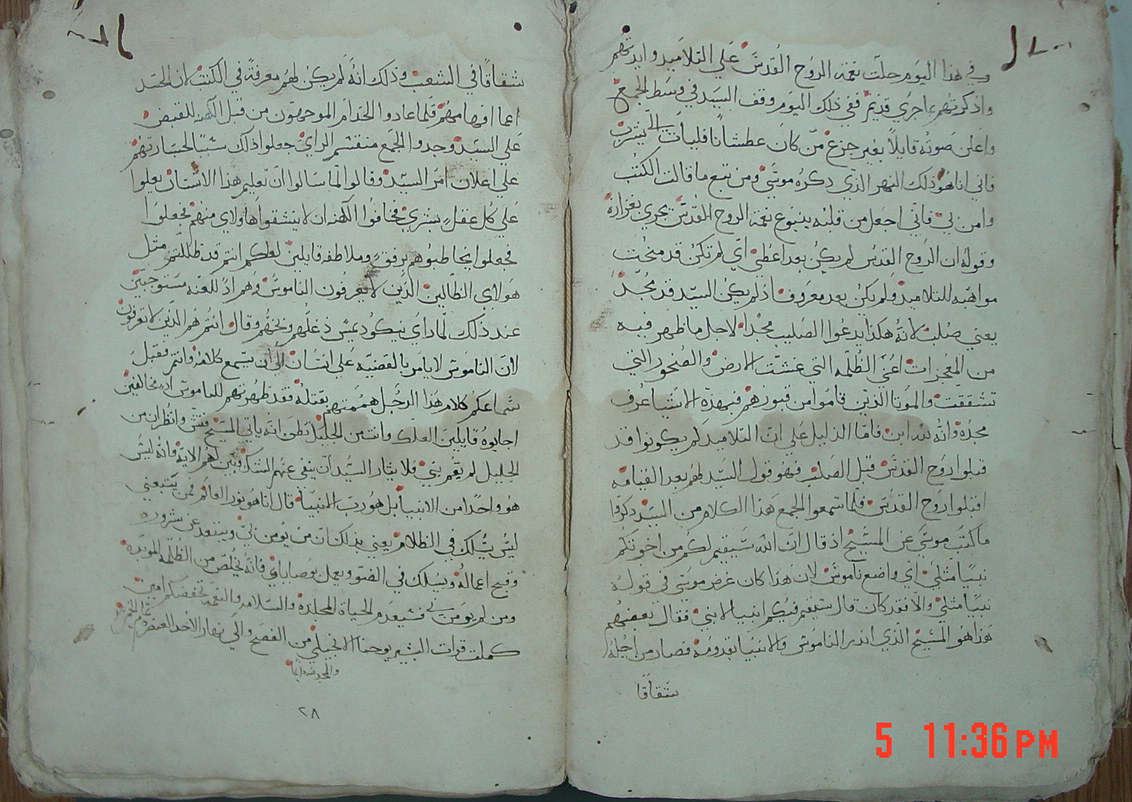 وفي هذا اليوم حلت نعمة الروح القدس على التلاميذ وايدتهم
واذكرتهم بماجرى قديم ففي ذلك اليوم وقف السيد في وسط المجمع
واعلن صوته قايلاً بغير جزع من كان عطشانا فليات الي يشرب
فاني انا هو ذلك النهر الذي ذكره موسى ومن تبع ما قالت الكتب
وامن بي فاني اجعل من قلبه ينبوع نعمة الروح القدس يجري بغزاره
وقوله ان الروح القدس لم يكن بعد اعطي اي لم تكن قد منحت
مواهبه للتلاميذ ولم يكن بعد معروف اذ لم يكن السيد قد مجد
يعني صلب لانه هكذا يدعوا الصليب مجدا لاجل ما ظهر فيه
من المعجزات اعني الظلمه التي غشت الارض والصخور التي
تشققت والموتا الذين قاموا من قبورهم فبهذه الاشيا عرف
مجده وانه ابن فاما الدليل على ان التلاميذ لم يكونوا قد
قبلوا روح القدس قبل الصلب فهو قول السيد لهم بعد القيامه
اقبلوا روح القدس فلما سمعوا المجمع هذا الكلام من السيد ذكروا
ما كتب موسى عن المسيح اذ قال ان الله سيقيم لكم من اخوتكم
نبيا مثلي اي واضع ناموس لان هذا كان غرض موسى في قوله
نبيا مثلي والا فقد كان قال ستقيم فيكم انبيا لا نبي فقال بعضهم
هذا هو المسيح الذي انذر الناموس والانبيا بقدومه فصار من اجله
شقاقا
شقاقا في الشعب وذلك انه لم يكن لهم معرفة في الكتب ان الحسد
اعما افهامهم فلما عادوا الخدام الموجهون من قبل الكهنه للقبض
على السيد وجدوا المجمع منقسم الراي جعلوا ذلك سببا لجسارتهم
على اعلان امر السيد وقالوا لما سالوا ان تعليم هذا الانسان يعلوا
على كل عقل بشري فخافوا الكهنه ان لا ينشقوا هاولاي منهم فجعلوا
فجعلوا يخاطبوهم برفق وملاطفه قايلين لعلكم انتم قد ظللتم مثل
هولاي الظالين الذين لا يعرفون الناموس وهم اذ للعنه مستوجبين
عند ذلك لما راى نيكوديمس دغلهم وخبثهم وقال انتم هم الذين لا تعرفون
لان الناموس لا يامر بالقضيه على انسان الى ان يسمع كلامه وانتم فقبل
سماعكم كلام هذا الرجل هممتم بقتله فقد ظهرتم للناموس مخالفين
اجابوه قايلين لعلك وانت من الجليل تظن انه ياتي المسيح فتش وانظر ان من
الجليل لم يقم نبي فلا يثار السيد ان ينفي عنهم الشك فبين لهم الايه وانه ليس
هو واحدا من الانبيا بل هو رب الانبيا قال انا هو نور العالم فمن يتبعني
ليس يسلك في الظلام يعني بذلك ان من يومن بي ويبتعد عن شروره
وقبح اعماله ويسلك في الضو ويعمل بوصاياي فانه يخلص من الظلمه الموبده
ومن لم يومن بي فسيعدم الحياة المخلده والسلام والنعمه تحفضكم امين
كملت قرات البشير يوحنا الانجيلي من الفصح والي نهار الاحد العنصره
والمجد لله دايما
٢٨
5 11:36 PM